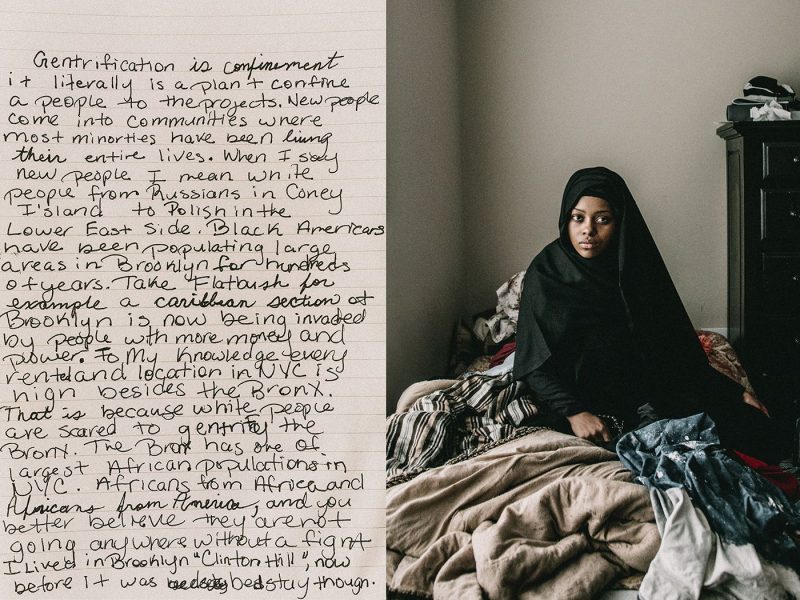 Gentrification is confinement
it literally is a plan t confine
a people to the projects. New people
come into communities where
most minorties have been living
their entire lives. When I say
new people I mean white
people from Russians in Coney
Island to Polish in the
Lower East Side. Black Americans
have been populating large
areas in Brooklyn for hundreds
of years. Take Flatbush for
example a caribbean section of
Brooklyn is now being invaded
by people with more money and
power. To My Knowledge every
rent and location in NYC is
high besides the Bronx.
That is because white people
are scared to gentrify the
Bronx. The Bronx has one of
largest African populations in
NYC. Africans from Africa and
Africans from America, and you
better believe they are not
going anywhere without a fight
I Lived in Brooklyn "Clinton Hill", now
before it was bed stay though.